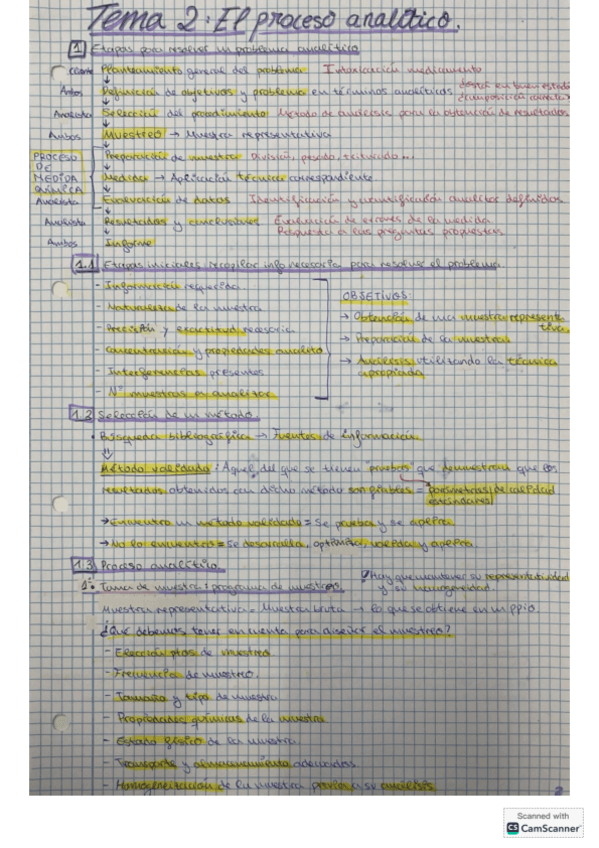 Tema 2: El proceso analítico.
1 Etapas para resolver un problema analítico
Cliente Planteamiento general del problema Intoxicación medicamento
Ambos Definición de objetivos y problema en términos analíticos
Analista Selección del procedimiento Método de análisis para la obtención de resultados
Ambos Muestreo → Muestra representativa
PROCESO DE MEDIDA QUÍMICA
Preparación de muestra División, pesado, triturado...
Medida → Aplicación técnica correspondiente
Analista Evaluación de datos Identificación y cuantificación analitos definidos
Analista Resultados y conclusiones Evaluación de errores de la medida
Respuesta a las preguntas propuestas
Ambos Informe
1.1 Etapas iniciales recopilar info necesaria para resolver el problema.
- Información requerida.
- Naturaleza de la muestra
- Precisión y exactitud necesaria
- Concentración y propiedades analito
- Interferencias presentes
- Nº muestras a analizar
OBJETIVOS:
→ Obtención de una muestra representativa.
→ Preparación de la muestra
→ Análisis utilizando la técnica apropiada
1.2 Selección de un método.
· Búsqueda bibliográfica → Fuentes de información
⇓
Método validado: Aquel del que se tienen "pruebas" que demuestran que los
resultados obtenidos con dicho método son fiables = parámetros de calidad
estándares
→ Encuentro un método validado = Se prueba y se aplica
→ No lo encuentras = Se desarrolla, optimiza, valida y aplica.
1.3 Proceso analítico.
1º: Toma de muestra: programa de muestreo.
Hay que mantener su representatividad
y su homogeneidad.
Muestra representativa = Muestra bruta → lo que se obtiene en un ppio.
¿Qué debemos tener en cuenta para diseñar el muestreo?
- Elección ptos de muestreo
- Frecuencia de muestreo.
- Tamaño y tipo de muestra
- Propiedades químicas de la muestra
- Estado físico de la muestra
- Transporte y almacenamiento adecuados.
- Homogeneización de la muestra previa a su análisis
2
Scanned with
CS CamScanner